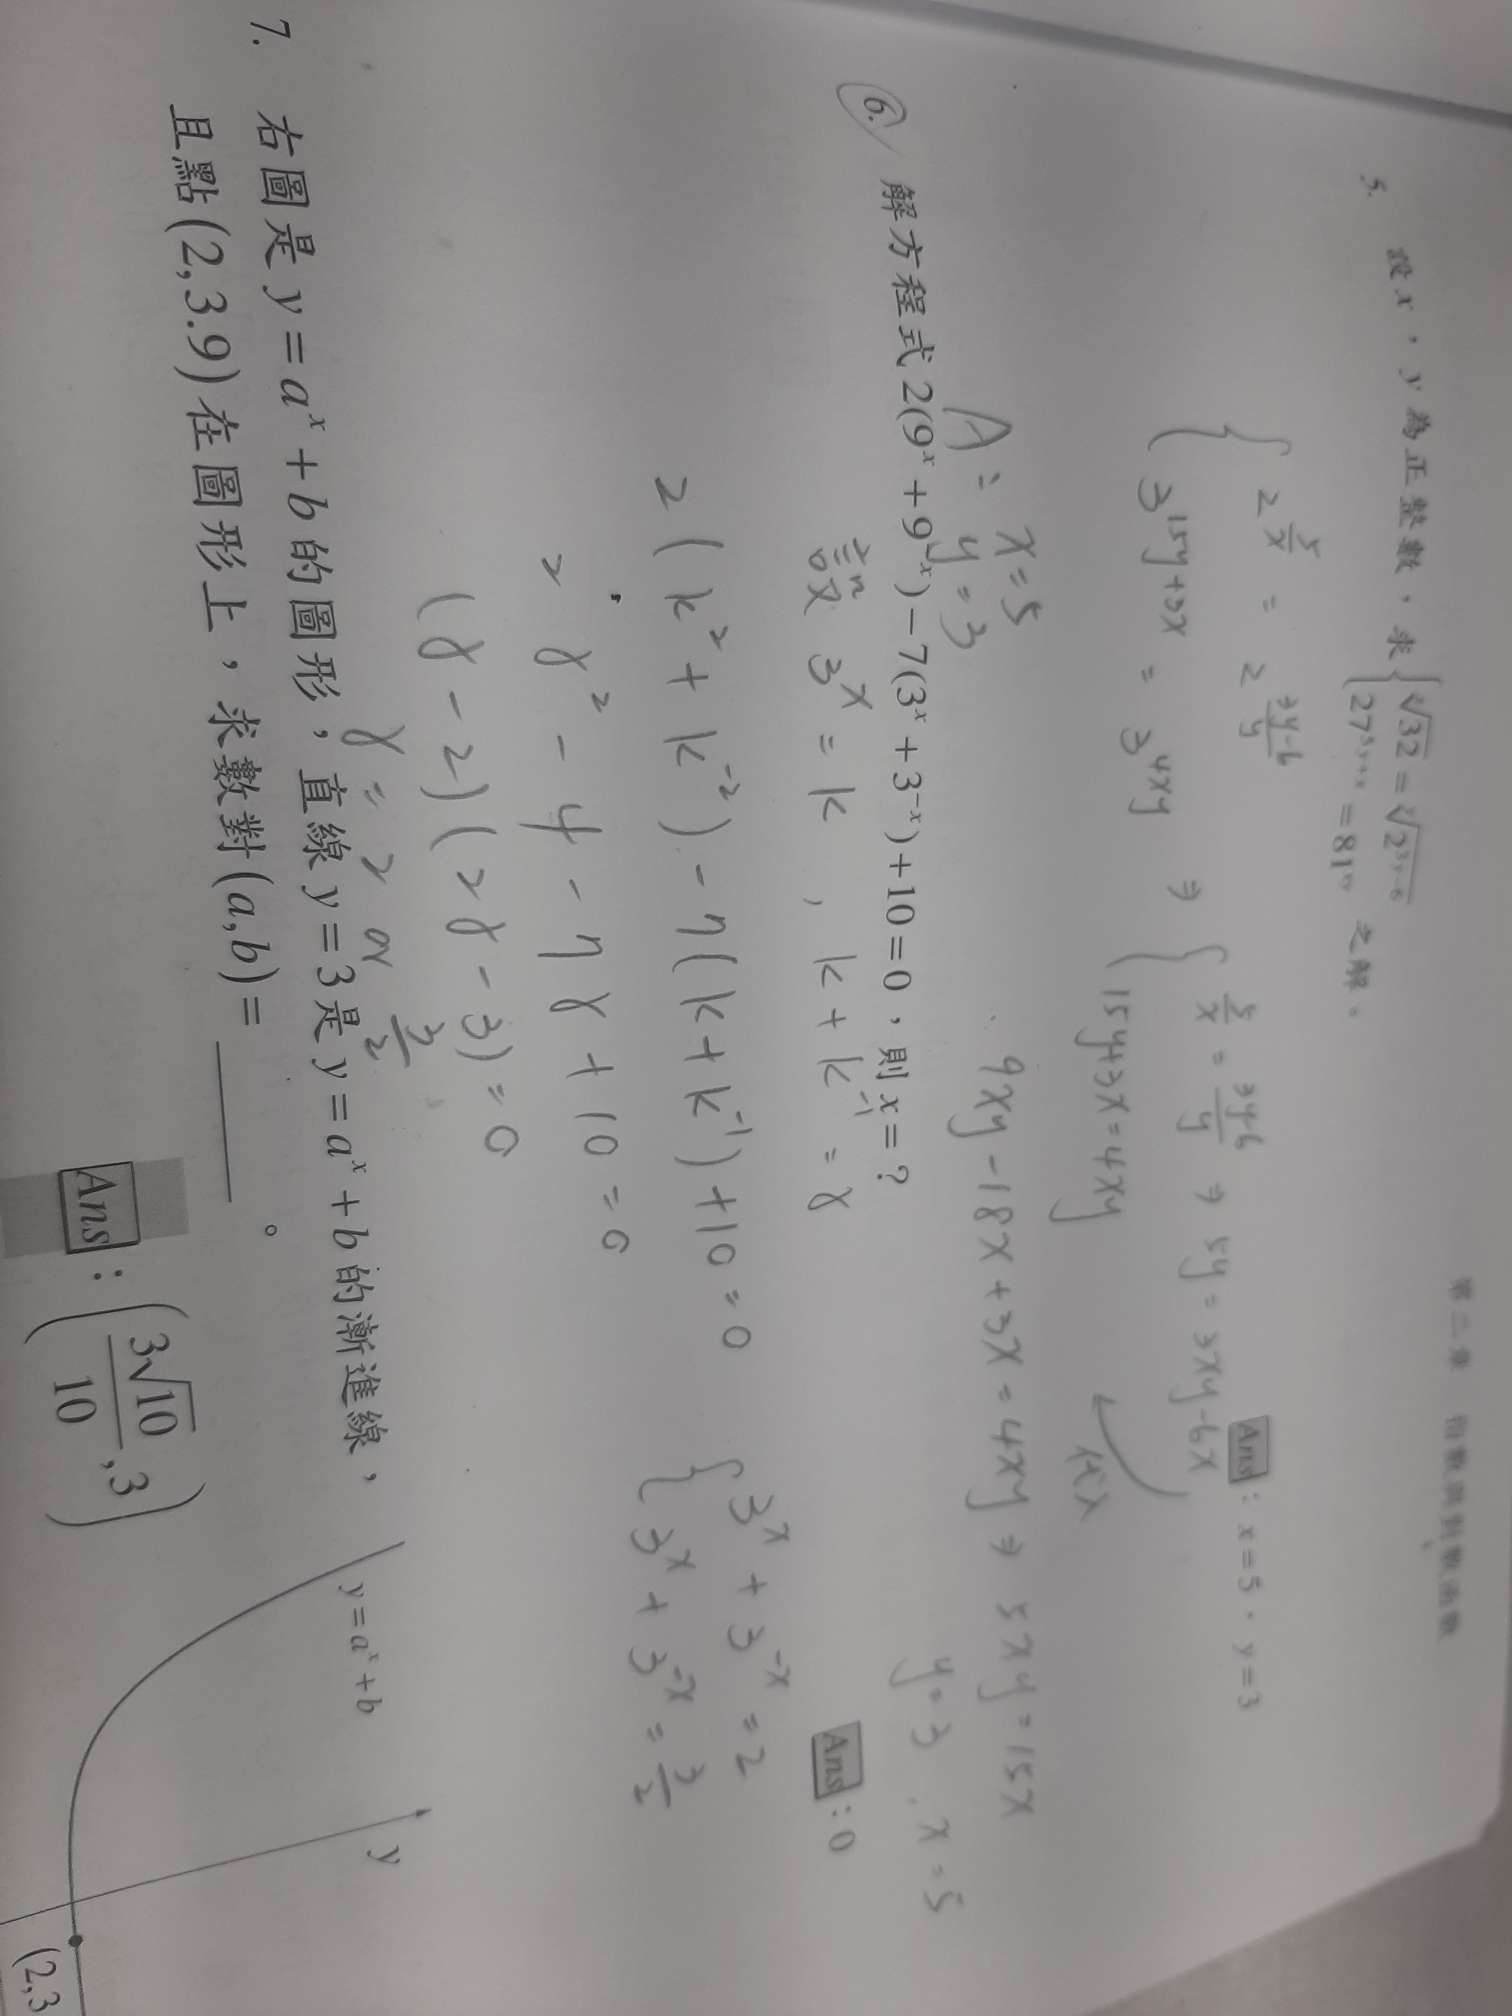 第二章 指數與對數函數
5. 設 x，y 為正整數，求 { ˣ√32 = ʸ√2³ʸ⁻⁶
27⁵ʸ⁺ˣ = 81ˣʸ 之解。
Ans : x = 5，y = 3
{ 2^(5/x) = 2^((3y-6)/y) ⇒ { 5/x = (3y-6)/y ⇒ 5y = 3xy-6x
3^(15y+3x) = 3^(4xy) 15y+3x = 4xy
代入
9xy - 18x + 3x = 4xy ⇒ 5xy = 15x
y = 3 , x = 5
A: x = 5
y = 3
6. 解方程式 2(9ˣ + 9⁻ˣ) − 7(3ˣ + 3⁻ˣ) + 10 = 0，則 x = ?
Ans : 0
設 3ˣ = k , k + k⁻¹ = γ
2(k² + k⁻²) - 7(k + k⁻¹) + 10 = 0
2γ² - 4 - 7γ + 10 = 0
(γ - 2)(2γ - 3) = 0
γ = 2 or 3/2
{ 3ˣ + 3⁻ˣ = 2
3ˣ + 3⁻ˣ = 3/2
7. 右圖是 y = aˣ + b 的圖形，直線 y = 3 是 y = aˣ + b 的漸進線，
且點 (2,3.9) 在圖形上，求數對 (a,b) = ______ 。
Ans : (3√10/10 , 3)
y = aˣ + b
y
(2,3